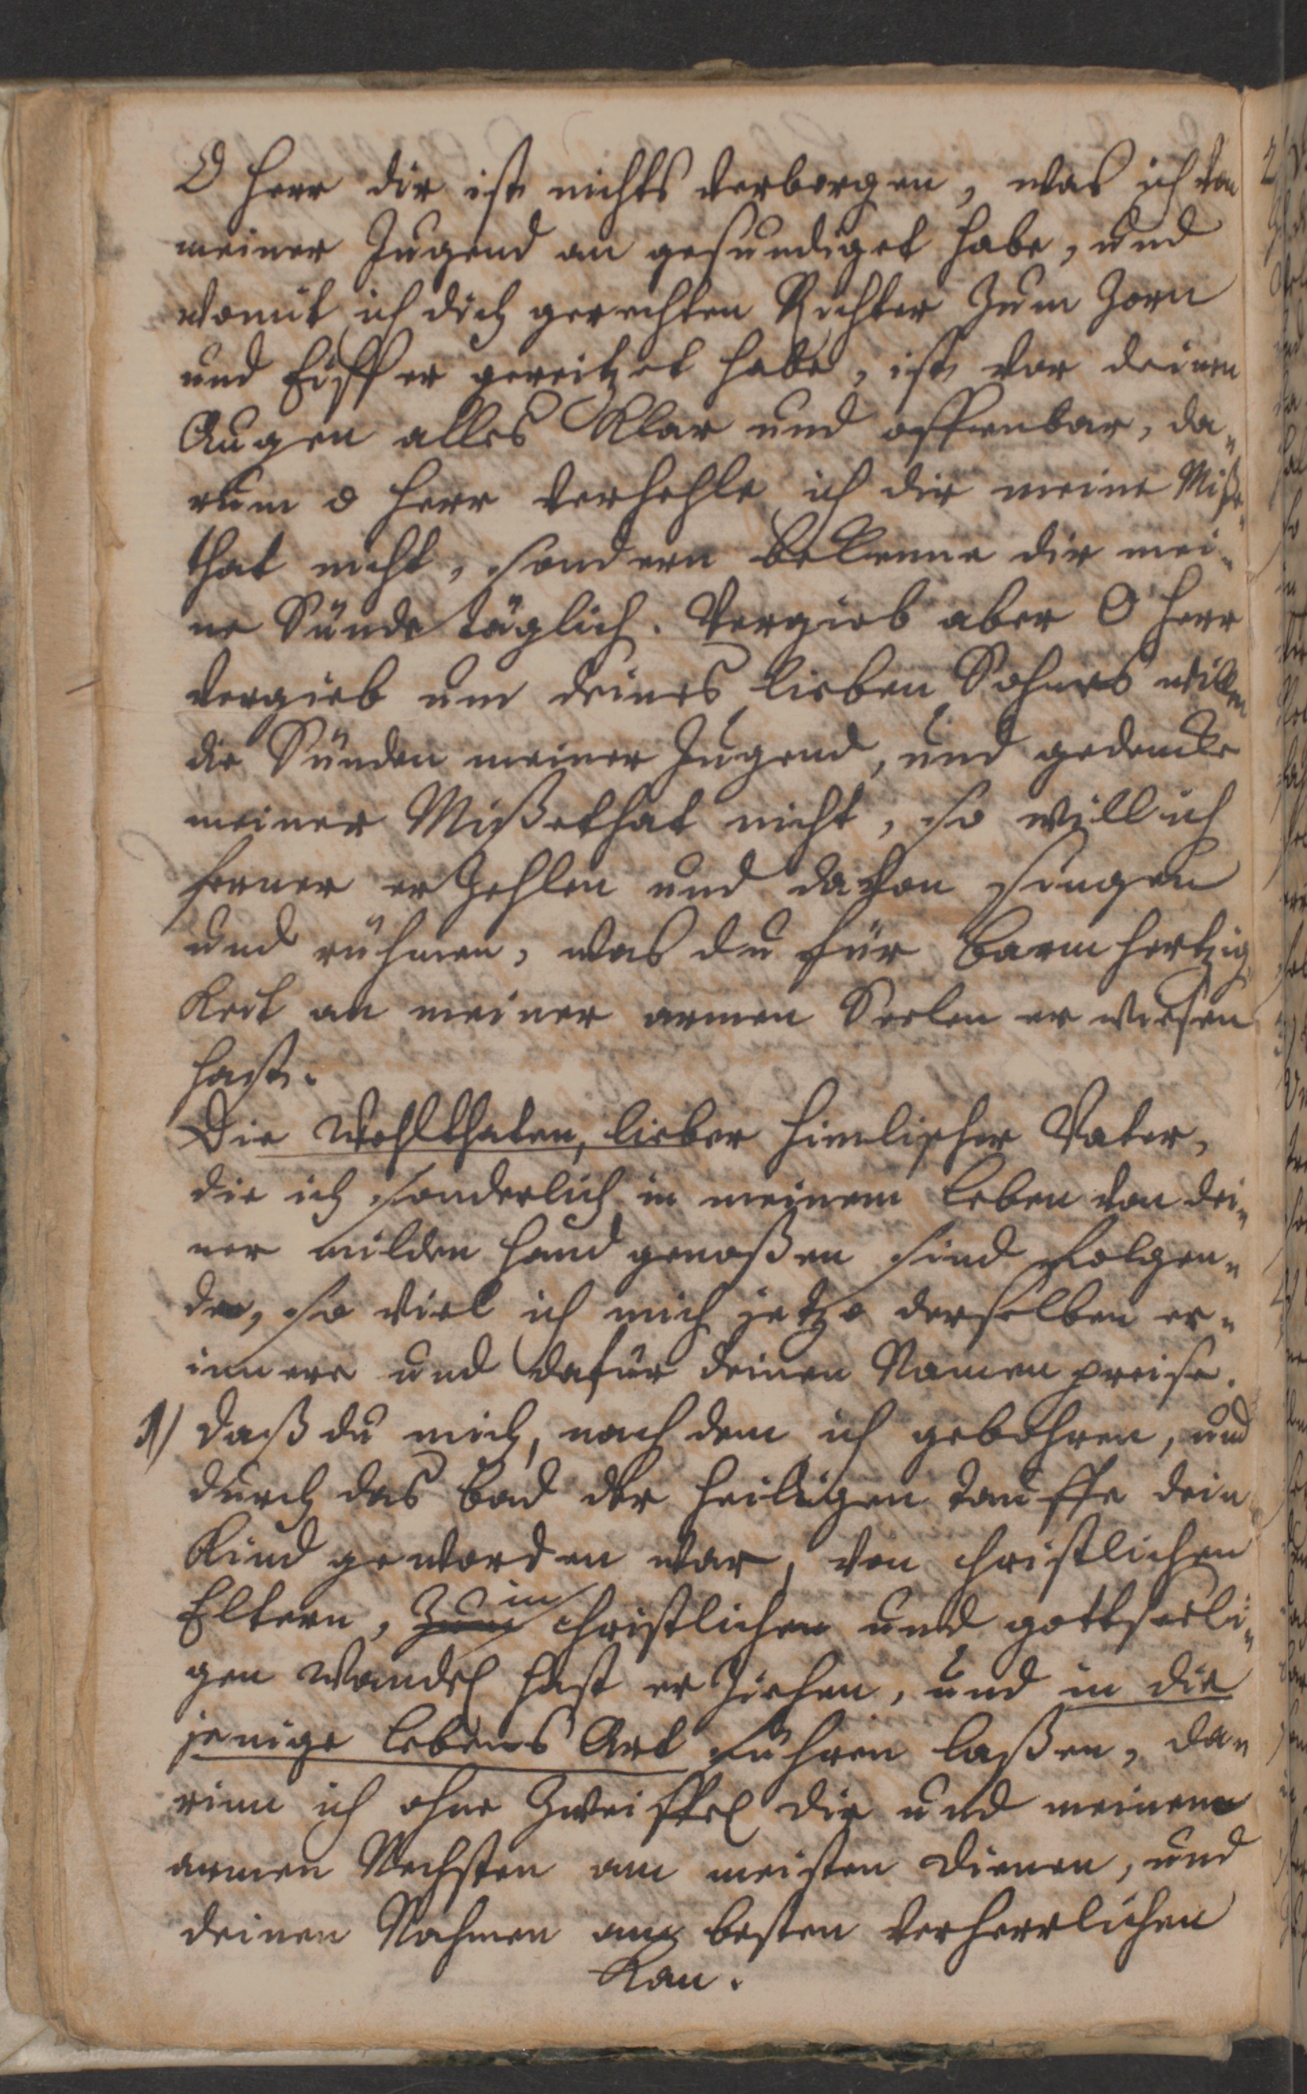 O Herr dir ist nichts verborgen, was ich von
meiner Jugend an gesundiget habe, und
womit ich dich gerechten Richter zum Zorn
und Eiffer gereitzet habe, ist vor deinen
Augen alles klar und offenbar, da„
rum o Herr verhehle ich dir meine Miße„
that nicht, sondern bekenne dir mei„
ne Sünde täglich. Vergieb aber O Herr
vergieb um deines lieben Sohnes willen
die Sünden meiner Jugend, und gedencke
meiner Mißethat nicht, so will ich
ferner erzehlen und davon singen
und rühmen, was du für barmhertzig
keit an meiner armen Seelen erwiesen
hast.
Die Wohlthaten, lieber himlischer Vater,
die ich sonderlich in meinem Leben von dei„
ner milden Hand genoßen sind folgen„
de, so viel ich mich jetzo derselben er„
innere und dafür deinen Namen preise.
1) daß du mich, nach dem ich gebohren, und
durch das bad der heiligen Tauffe dein
Kind geworden war, von christlichen
Eltern, zum in christlichen und gottseeli„
gen Wandel hast erziehen, und in die
jenige lebens Art führen laßen, da„
rinn ich ohne Zweiffel dir und meinem
armen Nechsten am meisten dienen, und
deinen Nahmen am besten verherrlichen
kan.